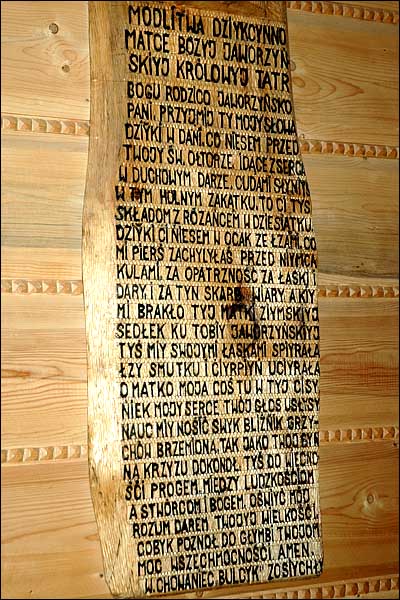 MODLITWA DZIYKCYNNO
MATCE BOZYJ JAWORZYŃ
SKIYJ KRÓLOWYJ TATR
BOGU RODZICO JAWORZYŃSKO
PANI, PRZYJMIJ TY MOJY SŁOWA
DZIYKI W DANI, CO NIESEM PRZED
TWOJY ŚW. OŁTORZE. IDĄC Z SERCA
W DUCHOWYM DARZE, CUDAMI SŁYNIY
W TYM HOLNYM ZAKATKU, TO CI TYS
SKŁADOM Z RÓŻAŃCEM W DZIESIĄTKU
DZIYKI CI NIESEM W OCAK ZE ŁZAMI, CO
MI PIERŚ ZACHYLYŁAŚ PRZED
KULAMI, ZA OPATRZNOŚĆ ZA ŁASKI I
DARY, I ZA TYN SKARB WIARY, A KIY
MI BRAKŁO TYJ MATKI ZIYMSKIYJ
SEDŁEK KU TOBIY JAWORZYŃSKIYJ
TYŚ MIY SWOJYMI ŁASKAMI SPIYRAŁA
ŁZY SMUTKU I CIYRPIYŃ UCIYRAŁA
O MATKO MOJA COŚ TU W TYJ CISY,
NIEK MOJY SERCE, TWÓJ GŁOS USŁYSY
NAUC MIY NOSIĆ SWYK BLIŹNIK GRZY-
CHÓW BRZEMIONA, TAK JAKO TWÓJ SYN
NA KRZYZU DOKONOŁ, TYŚ DO WIECNO
ŚCI PROGEM, MIĘDZY LUDZKOŚCIOM
A STWÓRCOM I BOGEM, OŚWIYĆ MÓJ
ROZUM DAREM TWOJYJ WIELKOŚCI
COBYK POZNOŁ DO GŁYMBI TWOJOM
MOC WSZECHMOCNOŚCI AMEN.
W. CHOWANIEC "BULCYK" ZOSYCHŁY